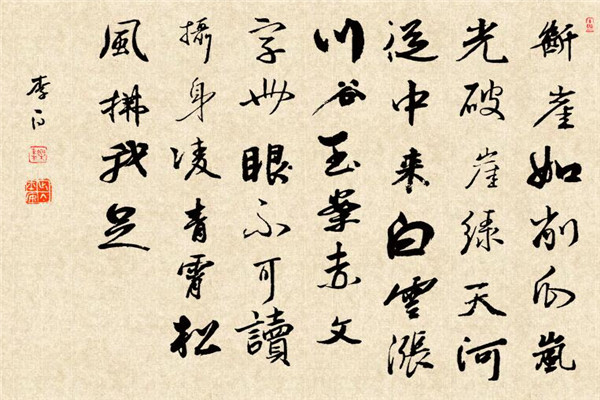 斷崖如削瓜嵐
光破崖綠天河
從中来白雲漲
川谷玉案赤文
字世眼不可讀
攝身凌青霄松
風拂我足
李白